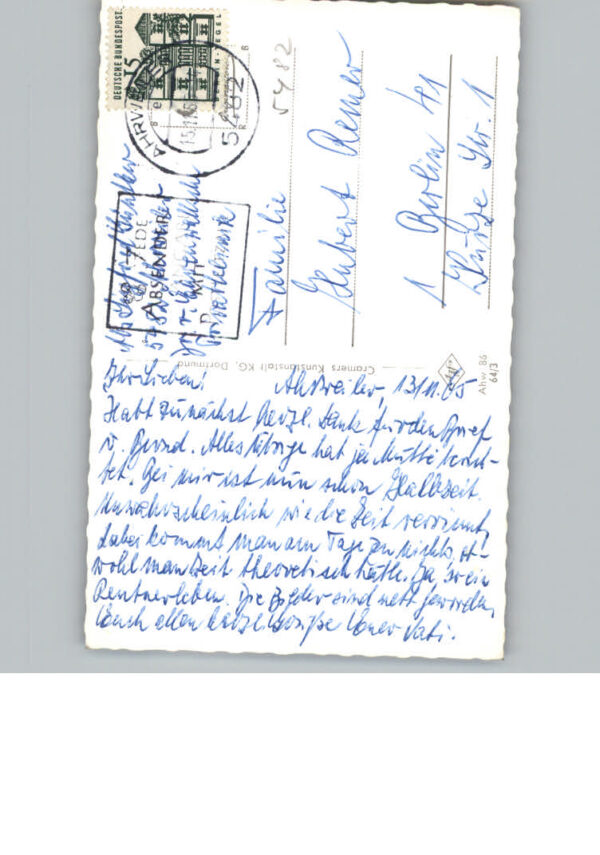 DEUTSCHE BUNDESPOST
15
BERLIN-TEGEL
AHRWEILER
15.11.65
5482
5482
JEDE
ABSENDER
MIT
Familie
Hubert Remer
1 Berlin 41
Str. 1
Cramers Kunstanstalt KG, Dortmund
Ahw 86
64/3
Ihr Lieben! Ahrweiler, 13/11.65
Habt zunächst herzl. Dank für den Brief
v. Bernd. Alles Übrige hat ja Mutti beant-
tet. Bei mir ist nun schon Halbzeit.
Unwahrscheinlich wie die Zeit verrinnt,
dabei kommt man am Tage zu nichts, ob-
wohl man Zeit theoretisch hätte. Ja, so ein
Rentnerleben. Die Bilder sind nett geworden.
Euch allen herzl. Grüße Euer Vati.